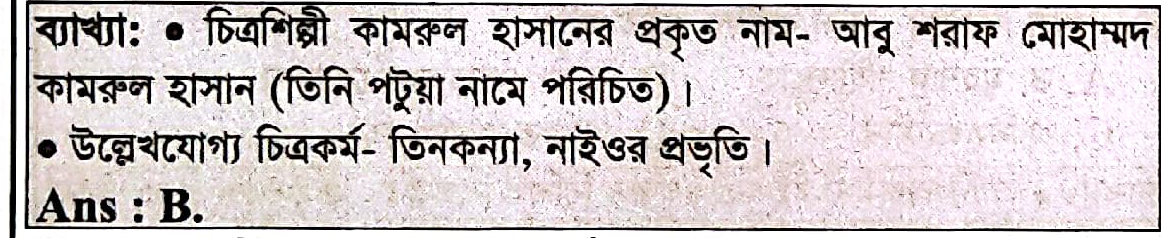 ব্যাখ্যা: ● চিত্রশিল্পী কামরুল হাসানের প্রকৃত নাম- আবু শরাফ মোহাম্মদ
কামরুল হাসান (তিনি পটুয়া নামে পরিচিত)।
● উল্লেখযোগ্য চিত্রকর্ম- তিনকন্যা, নাইওর প্রভৃতি।
Ans : B.